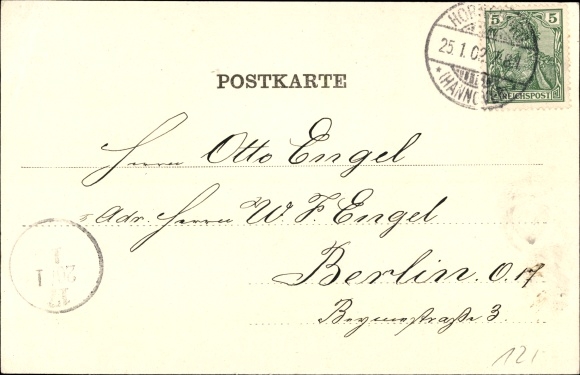 5 5
25.1.02
(HANNOVER)
REICHSPOST
POSTKARTE
Herrn Otto Engel
Adr. Herrn W. F. Engel
Berlin. O. 17
Beymestraße 3.
121